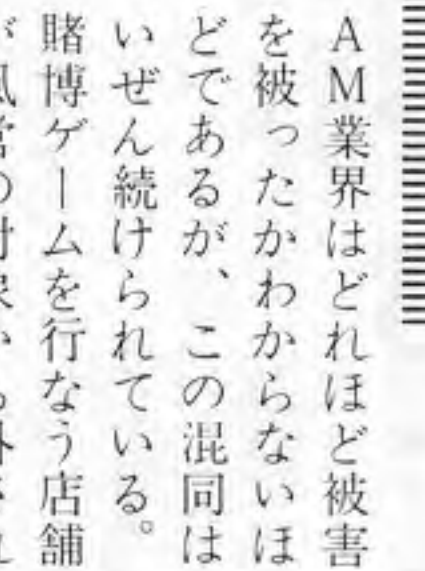 AM業界はどれほど被害
を被ったかわからないほ
どであるが、この混同は
いぜん続けられている。
賭博ゲームを行なう店舗